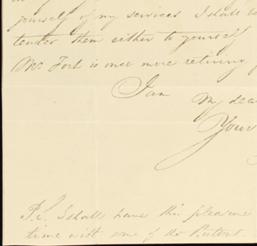 yourself of my services I shall be
tender them either to yourself
Mr Fort is once more retiring
I am
My dear
Your
P.S. I shall have the pleasure
time with one of the